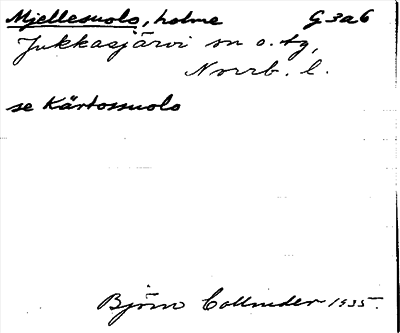 Mjellesuolo, holme G 3a6
Jukkasjärvi sn o. tg,
Norrb. l.
se Kårtossuolo
Björn Collinder 1935.